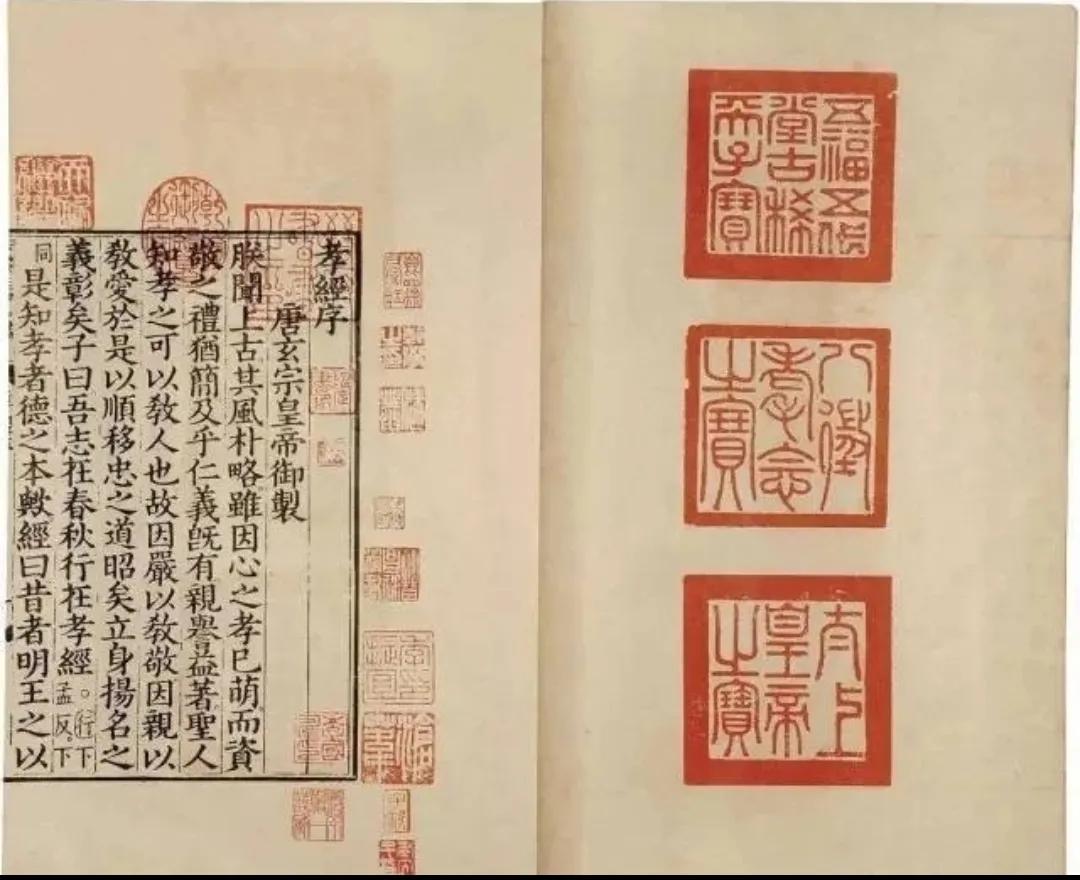 五福五代
堂古稀
天子寶
八徵
耄念
之寶
太上
皇帝
之寶
孝經序
唐玄宗皇帝御製
朕聞上古其風朴略雖因心之孝已萌而資
敬之禮猶簡及乎仁義旣有親譽益著聖人
知孝之可以敎人也故因嚴以敎敬因親以
敎愛於是以順移忠之道昭矣立身揚名之
義彰矣子曰吾志在春秋行在孝經。行下孟反。下
同是知孝者德之本歟經曰昔者明王之以